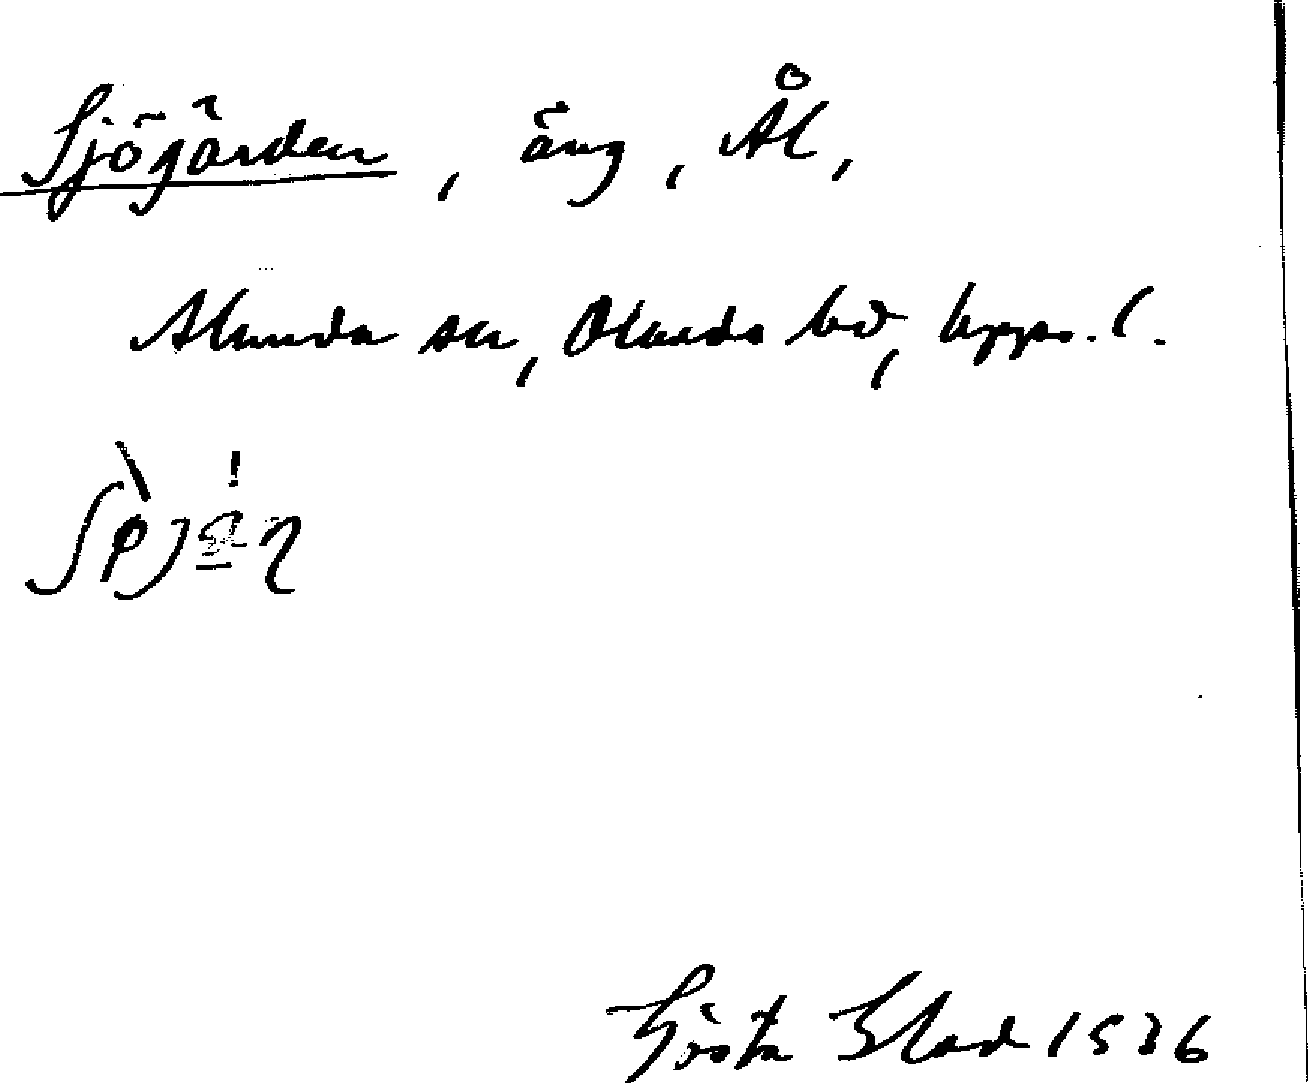 Sjögården, äng, Ål,
Alunda sn, Olands hd, Upps. l.
Gösta Blad 1936